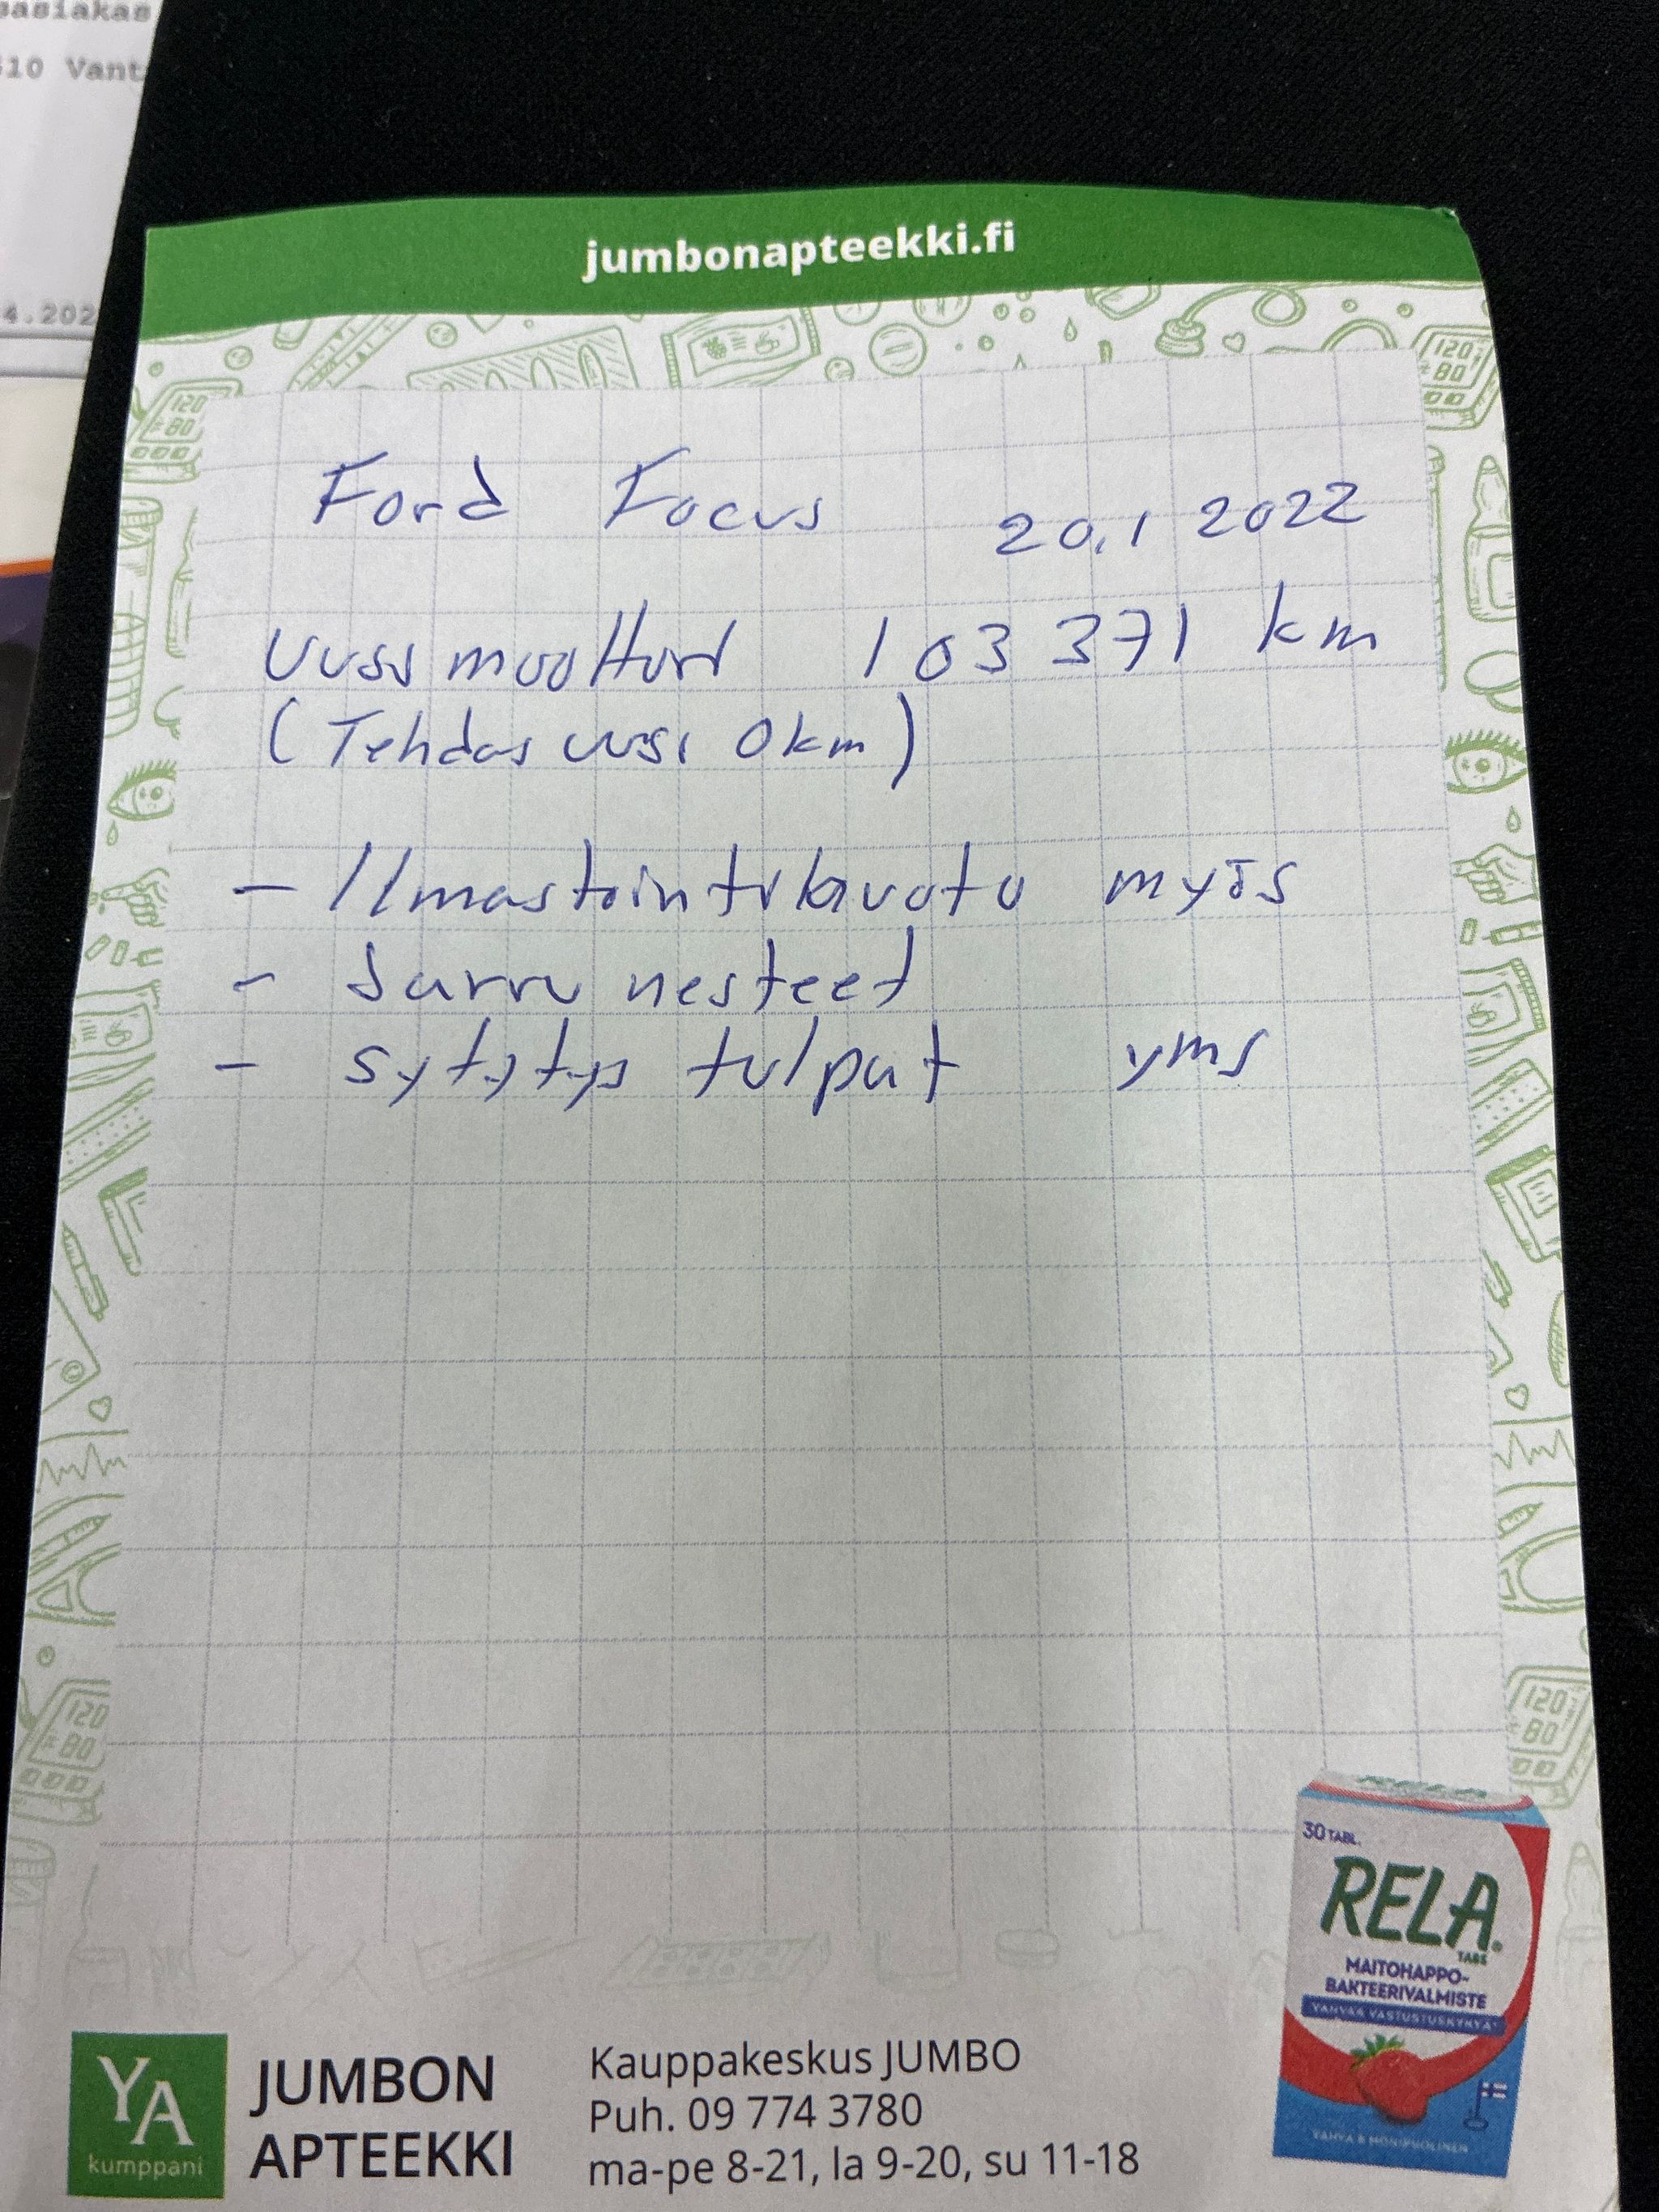 asiakas
510 Vant
4.202
jumbonapteekki.fi
120
80
120
80
Ford Focus 20.1 2022
Uusi moottori 103 371 km
(Tehdas uusi 0km)
- Ilmastointihuolto myös
- Jarru nesteet
- sytytys tulpat yms
120
80
120
80
RELA
30 TABL.
RELA
TABS
MAITOHAPPO-
BAKTEERIVALMISTE
VAHVAA VASTUSTUSKYKYÄ
VAHVA & MONIPUOLINEN
YA
kumppani
JUMBON
APTEEKKI
Kauppakeskus JUMBO
Puh. 09 774 3780
ma-pe 8-21, la 9-20, su 11-18